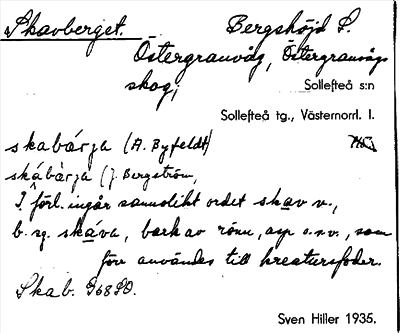 Skavberget. Bergshöjd S.
Östergranvåg, Östergranvågs
skog, Sollefteå s:n
Sollefteå tg., Västernorrl. l.
skabárja (A. Byfeldt)
skábàrja (J. Bergström,
I förl. ingår sannolikt ordet skav n.,
b. sg. skáva, bark av rönn, asp o.s.v., som
förr användes till kreatursfoder.
Skab. 968 SO.
Sven Hiller 1935.